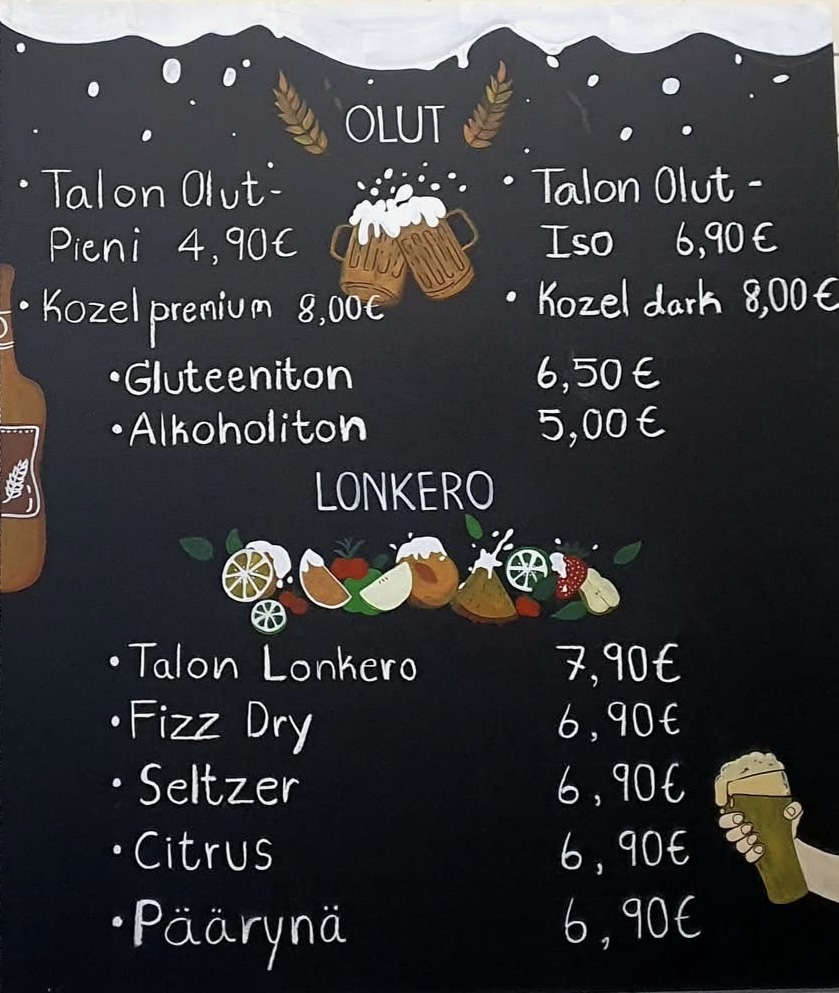 OLUT
• Talon Olut-
Pieni 4,90€
• Talon Olut -
Iso 6,90€
• Kozel premium 8,00€
• Kozel dark 8,00€
• Gluteeniton 6,50€
• Alkoholiton 5,00€
LONKERO
• Talon Lonkero 7,90€
• Fizz Dry 6,90€
• Seltzer 6,90€
• Citrus 6,90€
• Päärynä 6,90€